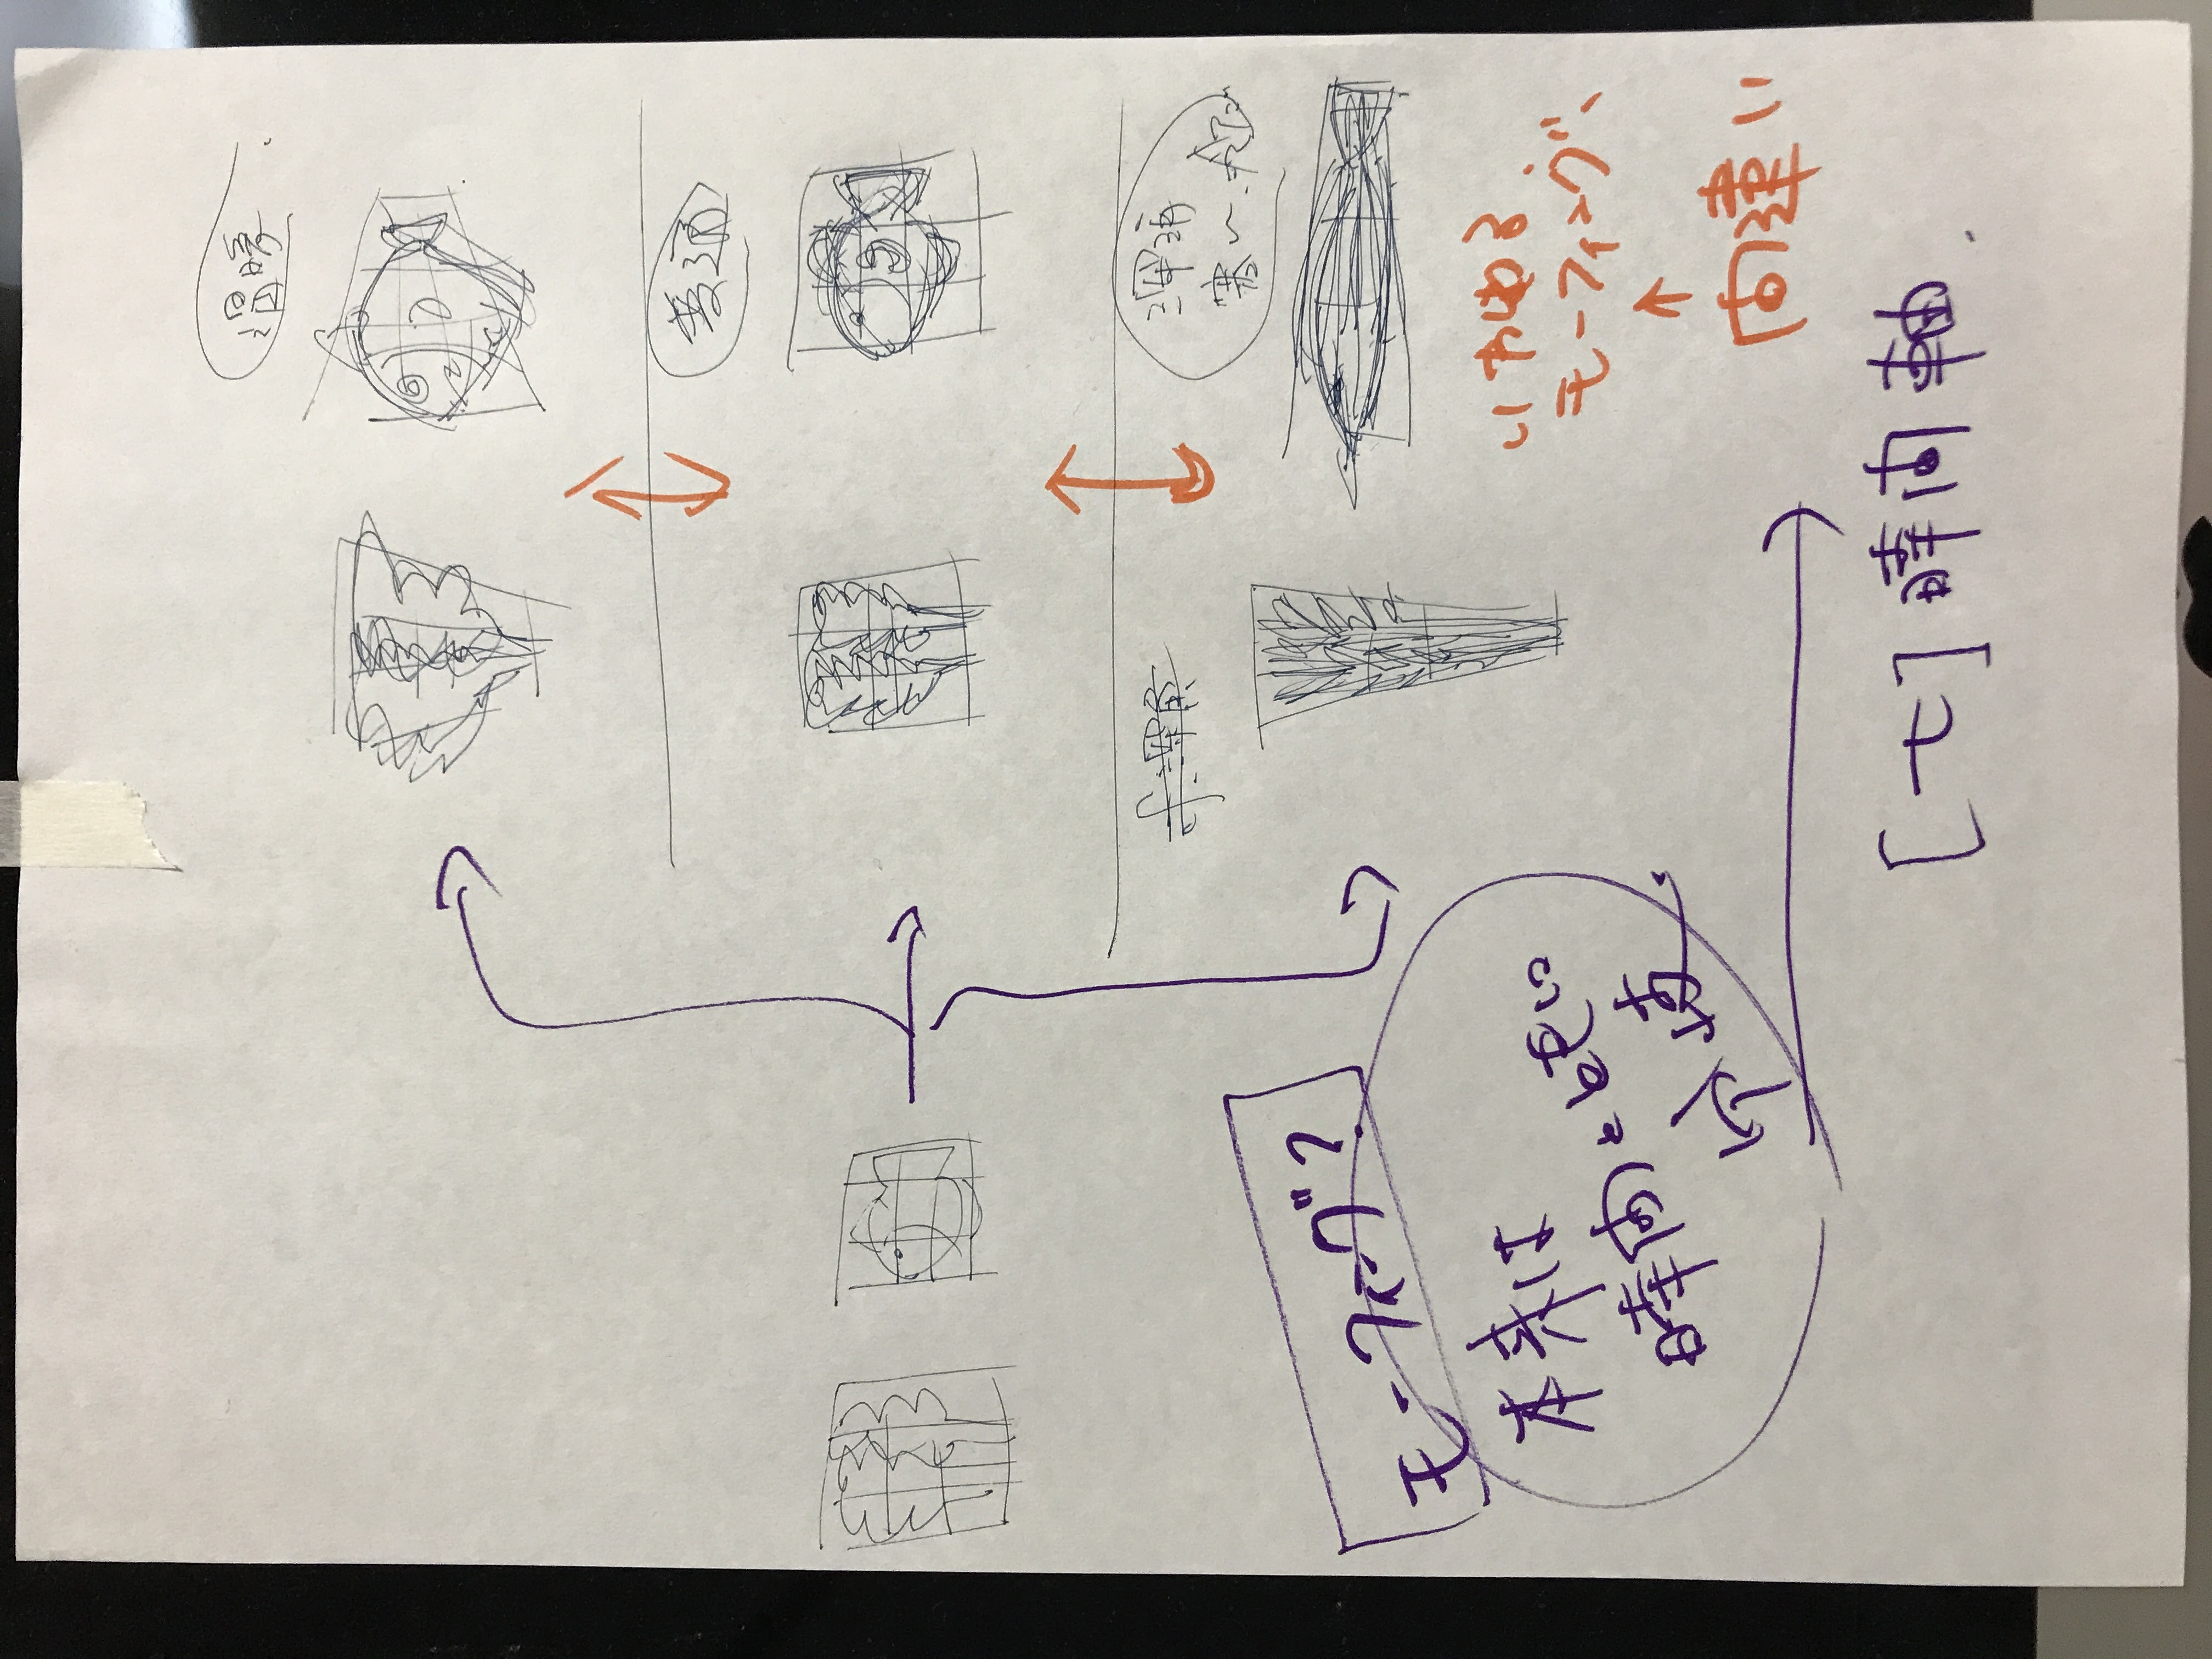 温暖
普通
深海
寒い
モーフィング?
本来は
時間とともに
分岐
いわゆる
モーフィング、
間違い
[七]時間軸